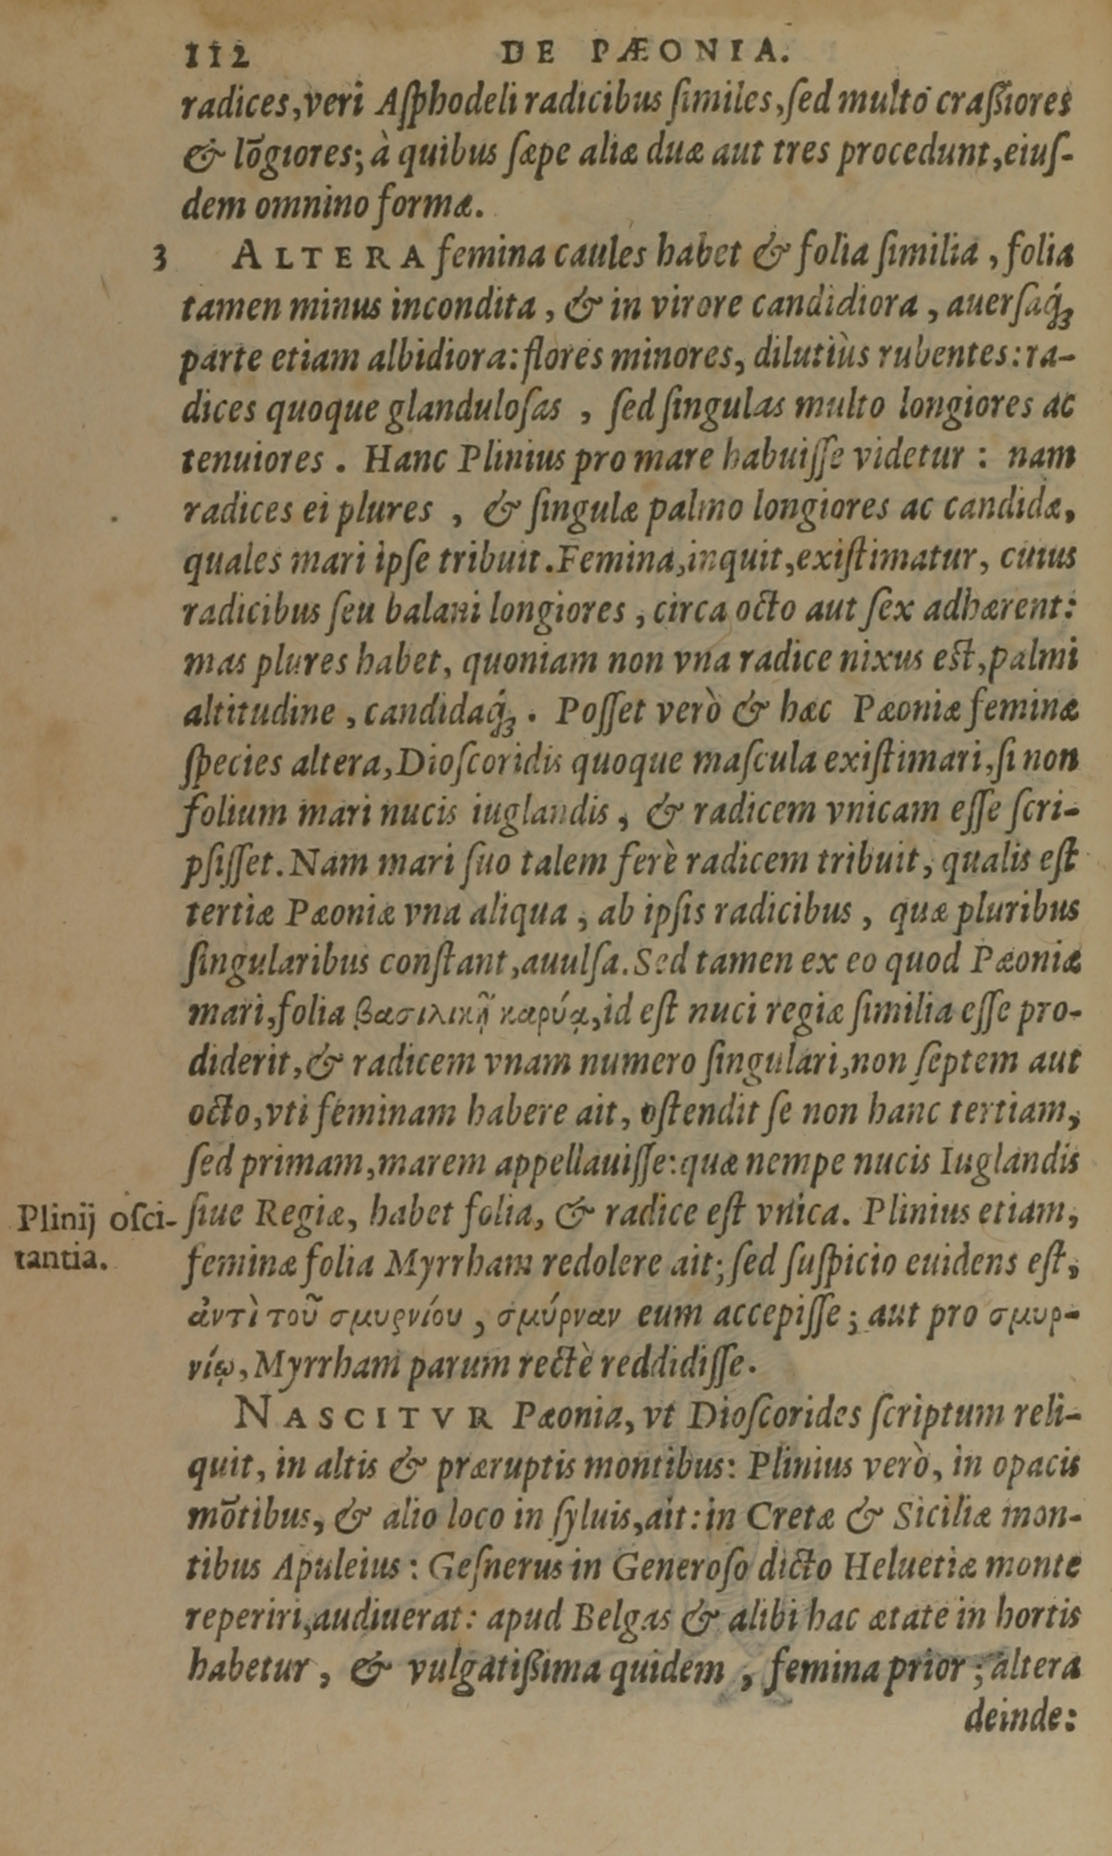 112 DE PÆONIA.
radices, veri Aſphodeli radicibus ſimiles, ſed multò craßiores
& lõgiores; à quibus ſæpe aliæ duæ aut tres procedunt, eiuſ-
dem omnino formæ.
3 ALTERA femina caules habet & folia ſimilia, folia
tamen minus incondita, & in virore candidiora, auerſaq́ꝫ
parte etiam albidiora: flores minores, dilutiùs rubentes: ra-
dices quoque glanduloſas, ſed ſingulas multo longiores ac
tenuiores. Hanc Plinius pro mare habuiſſe videtur: nam
radices ei plures, & ſingulæ palmo longiores ac candidæ,
quales mari ipſe tribuit. Femina, inquit, exiſtimatur, cuius
radicibus ſeu balani longiores, circa octo aut ſex adhærent:
mas plures habet, quoniam non vna radice nixus eſt, palmi
altitudine, candidaq́ꝫ. Poſſet verò & hæc Pæoniæ feminæ
ſpecies altera, Dioſcoridis quoque maſcula exiſtimari, ſi non
folium mari nucis iuglandis, & radicem vnicam eſſe ſcri-
pſiſſet. Nam mari ſuo talem ferè radicem tribuit, qualis eſt
tertiæ Pæoniæ vna aliqua, ab ipſis radicibus, quæ pluribus
ſingularibus conſtant, auulſa. Sed tamen ex eo quod Pæoniæ
mari, folia βασιλικῇ καρύᾳ, id eſt nuci regiæ ſimilia eſſe pro-
diderit, & radicem vnam numero ſingulari, non ſeptem aut
octo, vti feminam habere ait, oſtendit ſe non hanc tertiam,
ſed primam, marem appellauiſſe: quæ nempe nucis Iuglandis
ſiue Regiæ, habet folia, & radice eſt vnica. Plinius etiam,
Plinij oſci-
tantia.
feminæ folia Myrrham redolere ait; ſed ſuſpicio euidens eſt,
ἀντὶ τοῦ σμυρνίου, σμύρναν eum accepiſſe; aut pro σμυρ-
νίῳ, Myrrham parum rectè reddidiſſe.
NASCITVR Pæonia, vt Dioſcorides ſcriptum reli-
quit, in altis & præruptis montibus: Plinius verò, in opacis
mõtibus, & alio loco in ſyluis, ait: in Cretæ & Siciliæ mon-
tibus Apuleius: Geſnerus in Generoſo dicto Heluetiæ monte
reperiri, audiuerat: apud Belgas & alibi hac ætate in hortis
habetur, & vulgatißima quidem, femina prior; altera
deinde: